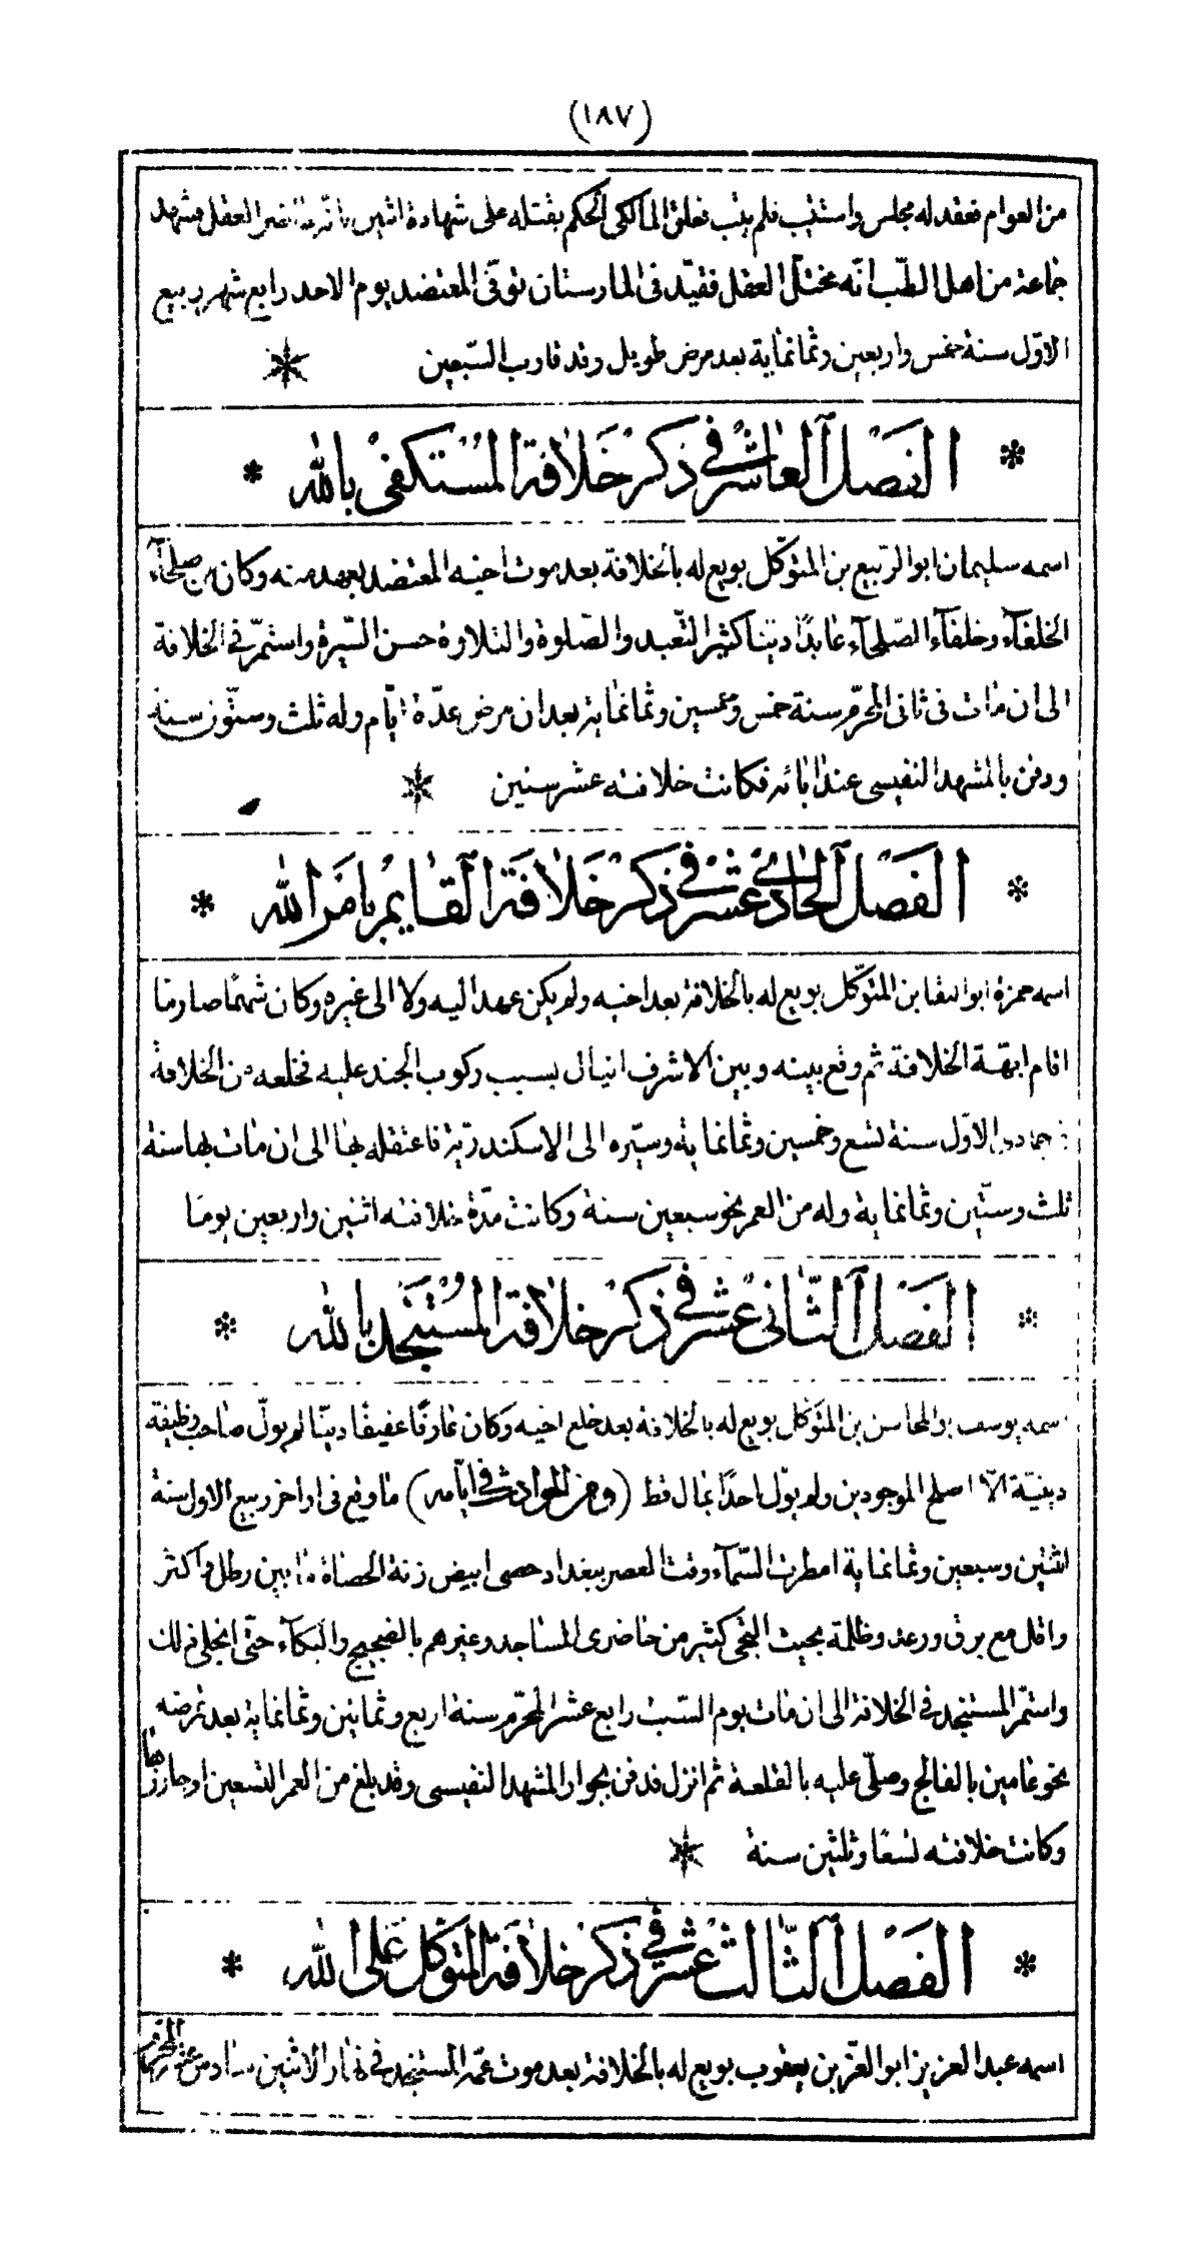 (١٨٧)
من العوام فعقد له مجلس واستتيب فلم يتب فعلق المالكى الحكم بقتله على شهادة اثنين بانه حاضر العقل فشهد
جماعة من اهل الطّب انّه مختلّ العقل فقيّد فى المارستان توفّى المعتضد يوم الاحد رابع شهر ربيع
الاوّل سنة خمس واربعين وثمانماية بعد مرض طويل وقد قارب السّبعين
* الفصل العاشر فى ذكر خلافة المستكفى بالله *
اسمه سليمان ابو الرّبيع بن المتوكّل بويع له بالخلافة بعد موت اخيه المعتضد بعهد منه وكان من صلحآء
الخلفآء وخلفآء الصّلحآء عابدًا ديّنا كثير التّعبد والصّلوة والتلاوة حسن السّيرة واستمرّ فى الخلافة
الى ان مات فى ثانى المحرّم سنة خمس وخمسين وثمانماية بعد ان مرض عدّة ايّام وله ثلث وستّون سنة
ودفن بالمشهد النفيسى عند ابائه فكانت خلافته عشر سنين
* الفصل الحادى عشر فى ذكر خلافة القايم بامر الله *
اسمه حمزة ابو البقا بن المتوكّل بويع له بالخلافة بعد اخيه ولم يكن عهد اليه ولا الى غيره وكان شهمًا صارمًا
اقام ابهّة الخلافة ثم وقع بينه وبين الاشرف اينال بسبب ركوب الجند عليه فخلعه من الخلافة
فى جمادى الاوّل سنة تسع وخمسين وثمانماية وسيّره الى الاسكندريّة فاعتقله بها الى ان مات بها سنة
ثلث وستّين وثمانماية وله من العمر نحو سبعين سنة وكانت مدّة خلافته اثنين واربعين يومًا
* الفصل الثّانى عشر فى ذكر خلافة المستنجد بالله *
اسمه يوسف ابو المحاسن بن المتوكّل بويع له بالخلافة بعد خلع اخيه وكان عارفًا عفيفًا ديّنا لم يولّ صاحب وظيفة
دينيّة الاّ اصلح الموجودين ولم يولّ احدًا بمال قط (ومن الحوادث فى ايّامه) ما وقع فى اواخر ربيع الاول سنة
اثنتين وسبعين وثمانماية امطرت السّمآء وقت العصر ببغداد حصى ابيض زنة الحصاة ما بين رطل واكثر
واقل مع برق ورعد وظلمة بحيث التجى كثير من حاضرى المساجد وغيرهم بالضجيج والبكآء حتّى انجلى ذلك
واستمّر المستنجد فى الخلافة الى ان مات يوم السّبت رابع عشر المحرّم سنة اربع وثمانين وثمانماية بعد تمرضه
نحو عامين بالفالج وصلّى عليه بالقلعة ثم انزل فدفن بجوار المشهد النفيسى وقد بلغ من العمر التسعين او جاوزها
وكانت خلافته تسعًا وثلثين سنة
* الفصل الثّالث عشر فى ذكر خلافة المتوكّل على الله *
اسمه عبد العزيز ابو العّز بن يعقوب بويع له بالخلافة بعد موت عمّه المستنجد فى نهار الاثنين سادس عشر المحرم